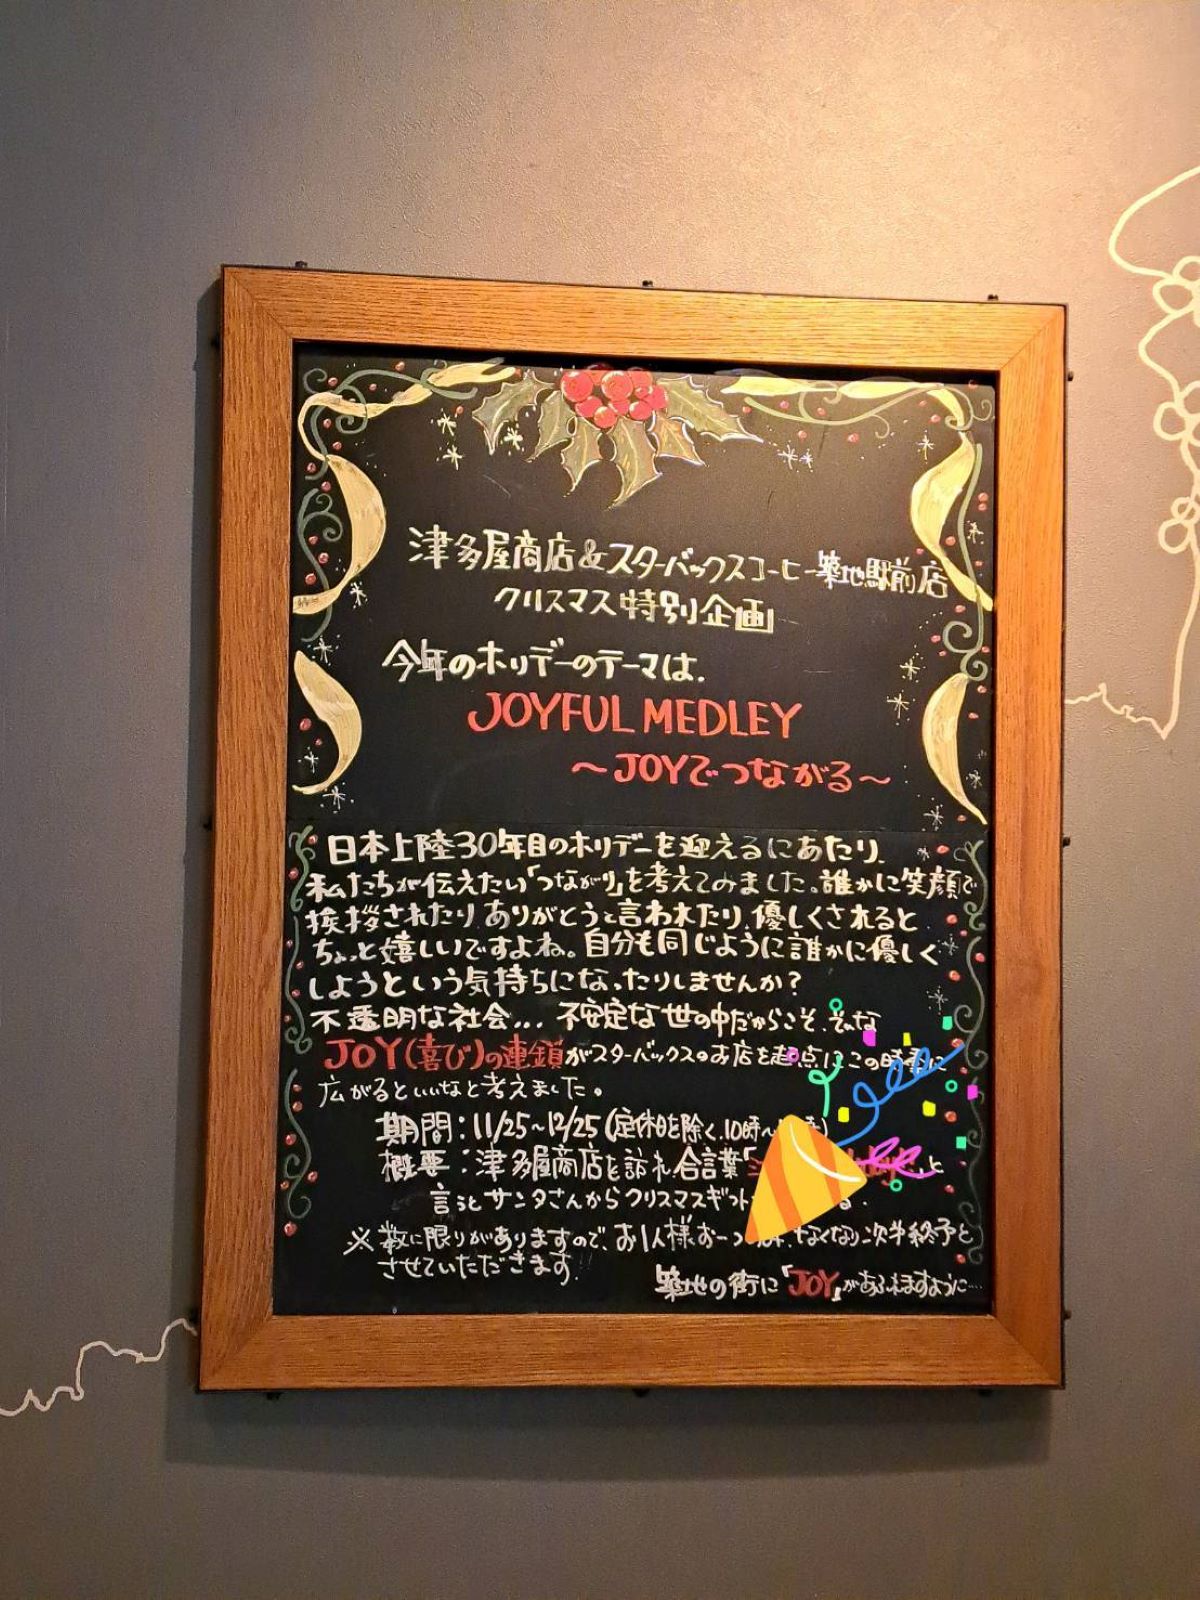 津多屋商店&スターバックスコーヒー築地駅前店
クリスマス特別企画
今年のホリデーのテーマは、
JOYFUL MEDLEY
～JOYでつながる～
日本上陸30年目のホリデーを迎えるにあたり、
私たちが伝えたい「つながり」を考えてみました。誰かに笑顔で
挨拶されたり、ありがとうと言われたり、優しくされると
ちょっと嬉しいですよね。自分も同じように誰かに優しく
しようという気持ちになったりしませんか?
不透明な社会... 不安定な世の中だからこそ、そんな
JOY(喜び)の連鎖がスターバックスのお店を起点にこの時季に
広がるといいなと考えました。
期間:11/25~12/25(定休日を除く、10時~
概要:津多屋商店を訪れ、合言葉「 と
言うとサンタさんからクリスマスギフト
※数に限りがありますので、お1人様お一つ なくなり次第終了と
させていただきます。
築地の街に「JOY」があふれますように…